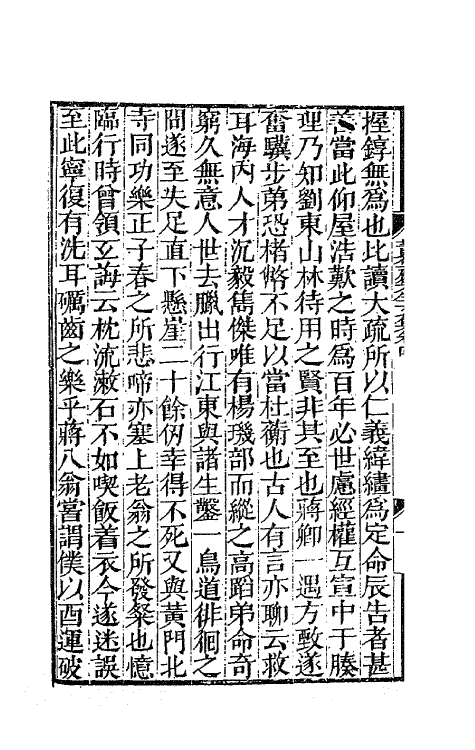 握錞無為也比讀大疏所以仁義緯繣為定命辰告者甚
善當此仰屋浩歎之時為百年必世慮經權互宣中于腠
理乃知劉東山林待用之賢非其至也蔣卿一遇方敺遂
奮驥步弟恐楮幣不足以當杜蘅也古人有言亦聊云救
耳海內人才沉毅雋傑唯有楊璣部而縱之高蹈弟命奇
窮久無意人世去臘出行江東與諸生鑿一鳥道徘徊之
間遂至失足直下懸崖二十餘仞幸得不死又與黃門北
寺同功樂正子春之所悲啼亦塞上老翁之所發粲也憶
臨行時曾領玄誨云枕流漱石不如喫飯着衣今遂迷誤
至此寧復有洗耳礪齒之樂乎蔣八翁嘗謂僕以酉運破